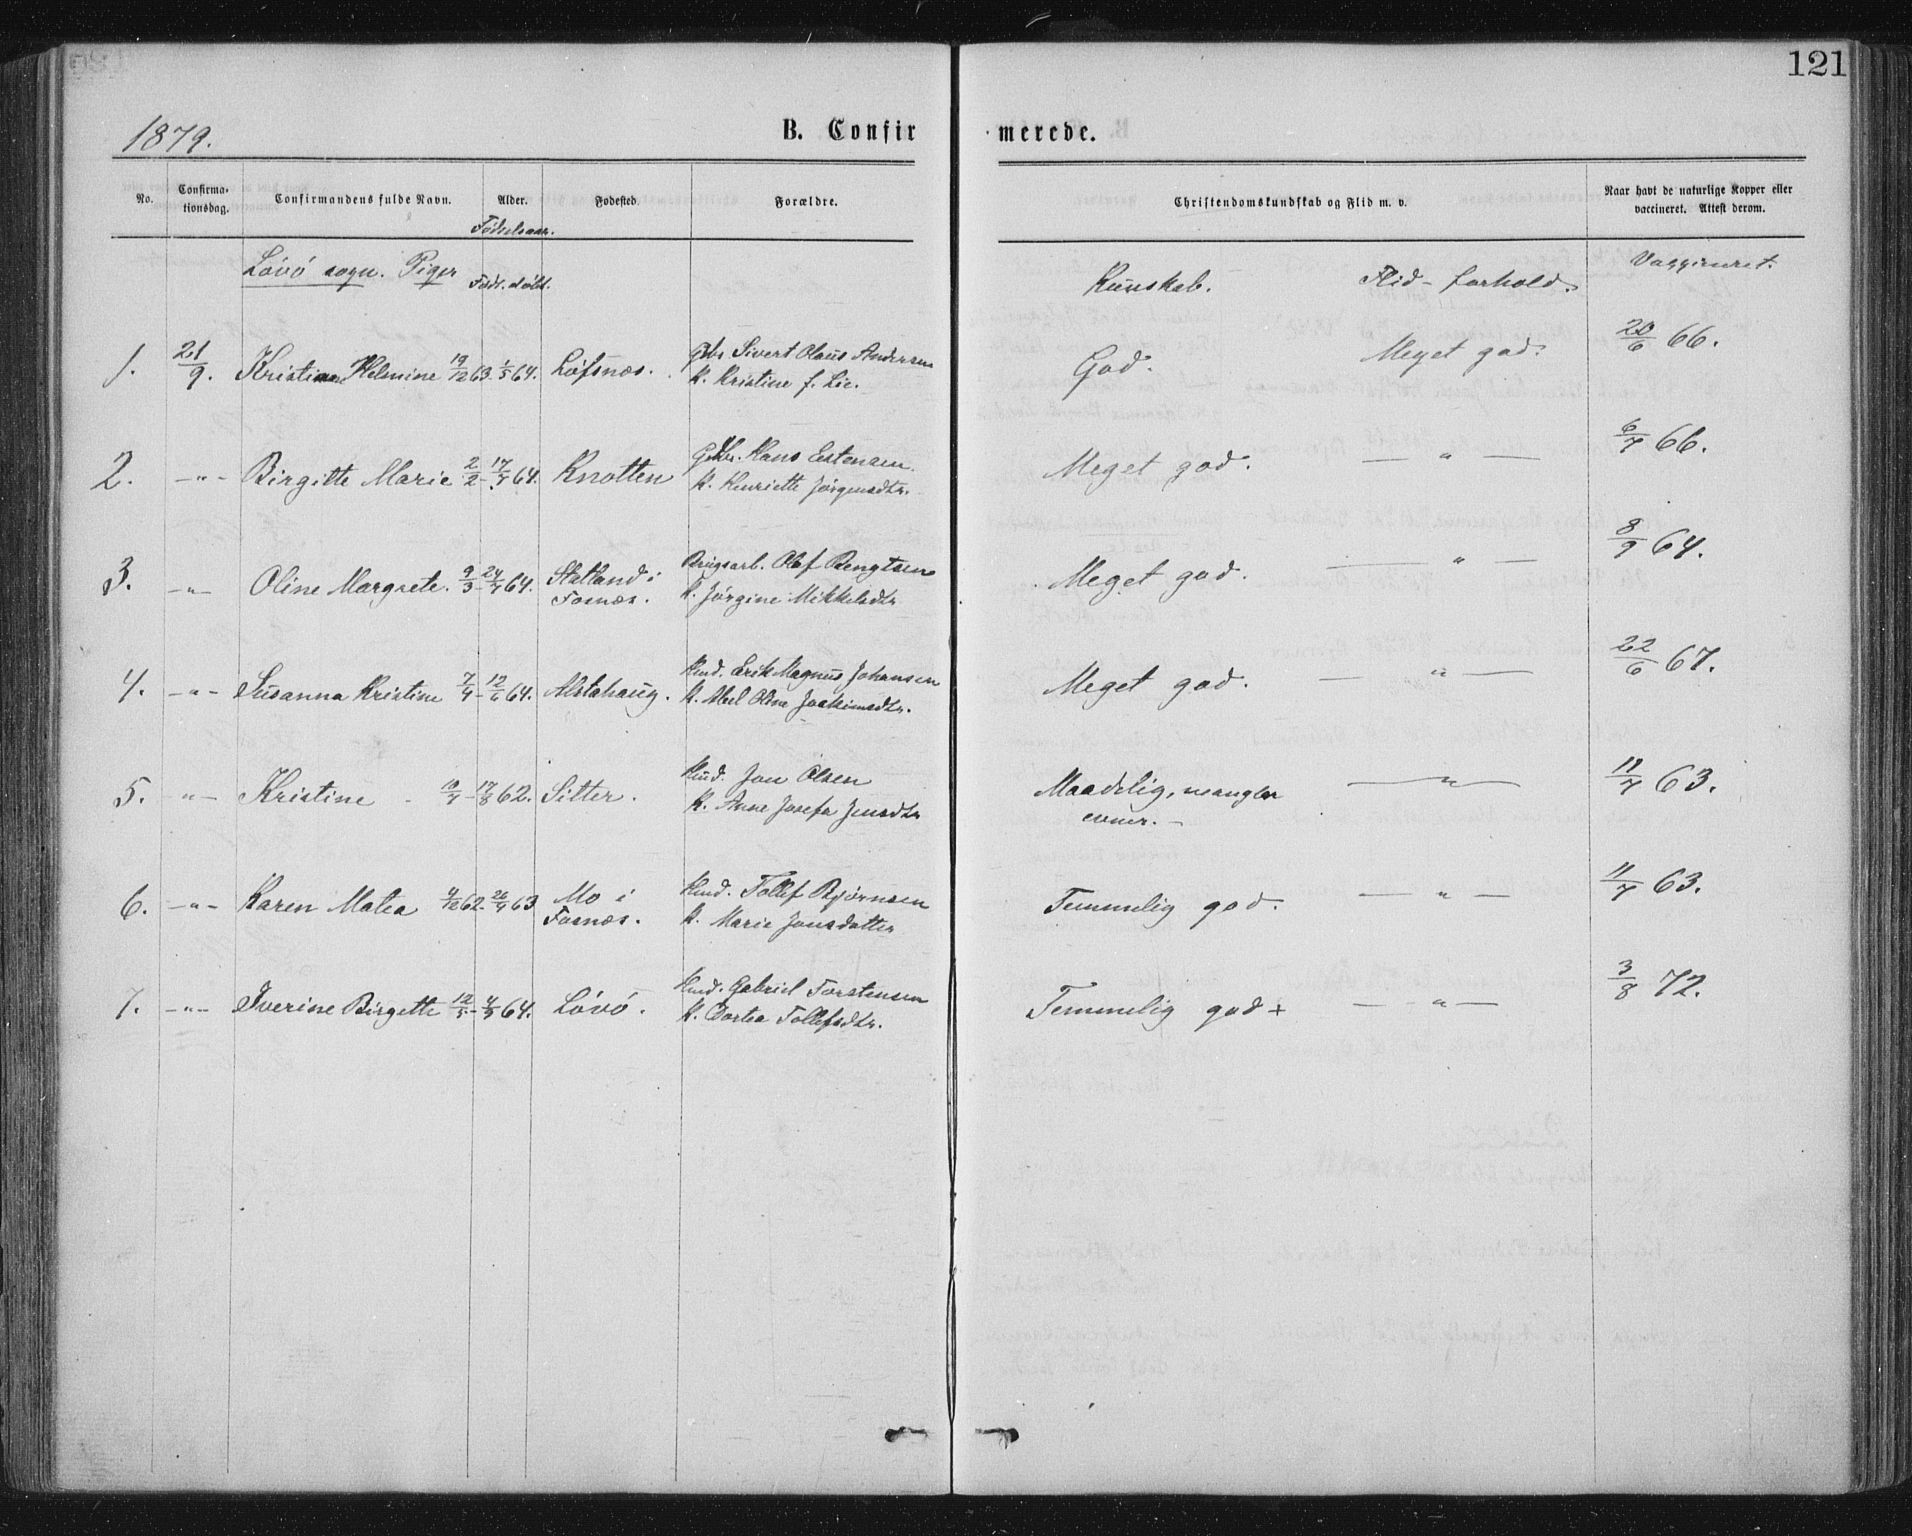 121
1879.
B. Confirmerede.
No. Confirmationsdag. Confirmandens fulde Navn. Alder. Fødested. Forældre. Christendomskundskab og Flid m. v. Naar havt de naturlige Kopper eller vaccineret. Attest derom.
Fødselsaar.
Lövö sogn. Piger Född. döbt. Kunskab. Flid - forhold. Vaxxineret.
1. 21/9. Kristine Helmine 19/12 63. 1/5 64. Löfsnæs. Gbr. Sivert Olaus Andersen God. Meget god. 20/6 66.
K. Kristine f. Lie.
2. -"- Birgitte Marie 2/2 - 17/7 64. Knotten Gbr. Hans Estensen Meget god. — " — 6/7 66.
K. Henriette Jörgensdtr.
3. -"- Oline Margrete. 9/3 - 24/7 64. Statland i Brugsarb. Olof Bengtsen Meget god. — " — 8/9 64.
Fosnæs. K. Jörgine Mikkelsdtr
4. -"- Susanna Kristine 7/4 - 12/6 64. Alstahaug. Hmd. Erik Magnus Johansen Meget god. — " — 22/6 67.
K. Abel Oline Joakimsdtr.
5. -"- Kristine 10/7 - 17/8 62. Sitter. Hmd. Jon Olsen Maadelig, mangler — " — 11/7 63.
K. Anne Josefa Jensdtr evner. -
6. -"- Karen Matea 4/12 62. 26/4 63 Mo i Hmd. Tollef Bjørnsen Temmelig god. — " — 11/7 63.
Fosnæs. K. Marie Jonsdatter
7. -"- Iverine Birgette 12/5 - 4/9 64. Lövö. Hmd. Gabriel Torstensen Temmelig god + — " — 3/8 72.
K. Dortea Tollefsdtr.